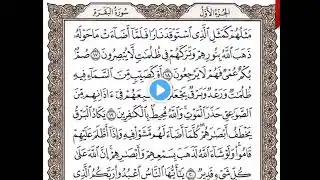 الجزء الأول
سورة البقرة
مثلهم كمثل الذى استوقد نارا فلما أضاءت ما حوله
ذهب الله بنورهم وتركهم فى ظلمت لا يبصرون ١٧ صم
بكم عمى فهم لا يرجعون ١٨ أو كصيب من السماء فيه
ظلمت ورعد وبرق يجعلون أصبعهم فى ءاذانهم من
الصوعق حذر الموت والله محيط بالكفرين ١٩ يكاد البرق
يخطف أبصرهم كلما أضاء لهم مشوا فيه وإذا أظلم عليهم
قاموا ولو شاء الله لذهب بسمعهم وأبصرهم إن الله على
كل شىء قدير ٢٠ يأيها الناس اعبدوا ربكم الذى